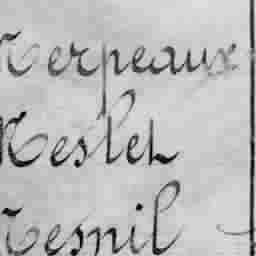 Merpeaux
Meslet
Mesnil